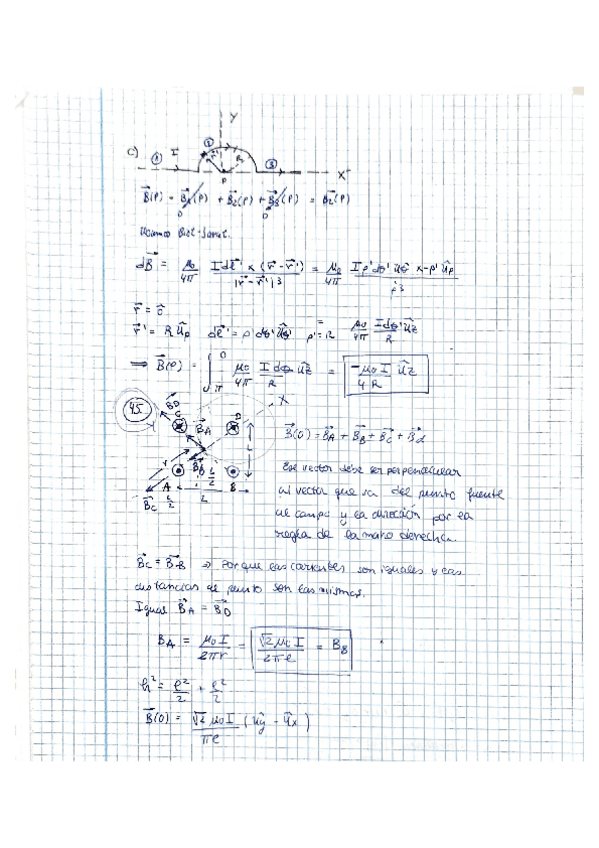 Y
c) ① I ② R ③ X
P
B⃗(P) = B⃗₁(P) + B⃗₂(P) + B⃗₃(P) = B⃗₂(P)
0 0
Usamos Biot-Savat.
dB⃗ = μ₀/4π Idl⃗' × (r⃗ - r⃗')/|r⃗ - r⃗'|³ = μ₀/4π Iρ'dθ' ûθ × -ρ' ûρ/ρ³
r⃗ = 0⃗
r⃗' = R ûρ dl⃗' = ρ' dθ' ûθ ρ' = R = μ₀/4π Idθ' ûz/R
⟹ B⃗(P) = ∫π0 μ₀/4π I dθ ûz/R = -μ₀ I/4 R ûz
45 B⃗D C B⃗A D X
B⃗(0) = B⃗A + B⃗B + B⃗C + B⃗d
Y B⃗B L/2 L
A B
B⃗C L/2 L
Ese vector debe ser perpendicular
al vector que va del punto fuente
al campo y la dirección por la
regla de la mano derecha.
B⃗C = B⃗B ⇒ Porque las corrientes son iguales y las
distancias al punto son las mismas.
Igual B⃗A = B⃗D
BA = μ₀ I/2πr = √2 μ₀ I/2πl = BB
h² = l²/2 + l²/2
B⃗(0) = √2 μ₀ I/πl (ûy - ûx)